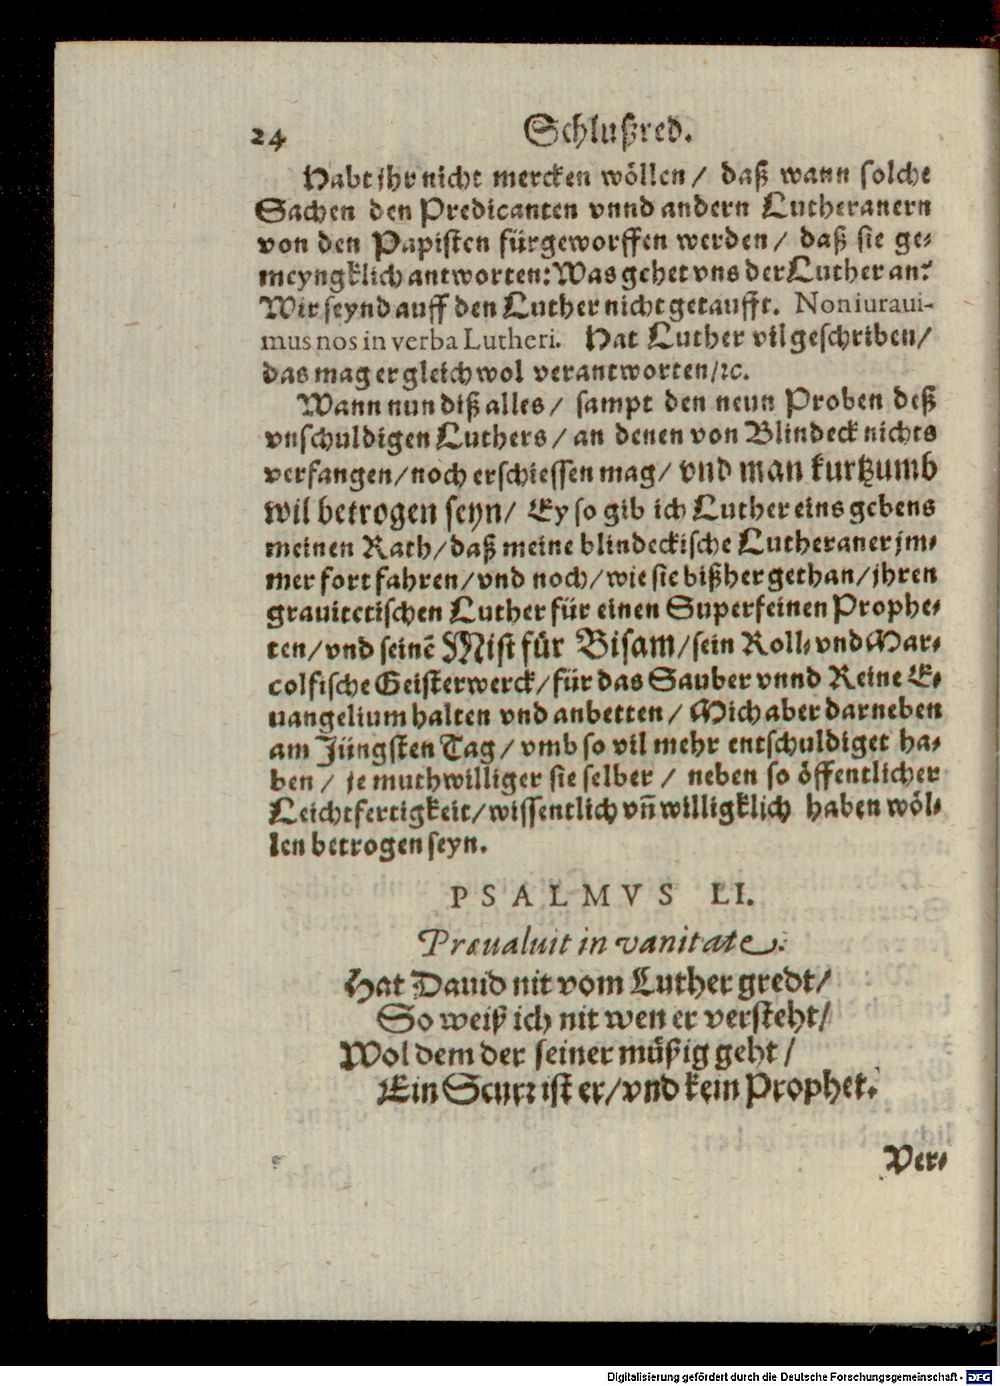 24 Schlußred.
Habt jhr nicht mercken wöllen / daß wann solche
Sachen den Predicanten vnnd andern Lutheranern
von den Papisten fürgeworffen werden / daß sie ge-
meyngklich antworten: Was gehet vns der Luther an?
Wir seynd auff den Luther nicht getaufft. Non iuraui-
mus nos in verba Lutheri. Hat Luther vil geschriben /
das mag er gleichwol verantworten / ꝛc.
Wann nun diß alles / sampt den neun Proben deß
vnschuldigen Luthers / an denen von Blindeck nichts
verfangen / noch erschiessen mag / vnd man kurtzumb
wil betrogen seyn / Ey so gib ich Luther eins gebens
meinen Rath / daß meine blindeckische Lutheraner jm-
mer fort fahren / vnd noch / wie sie bißher gethan / jhren
grauitetischen Luther für einen Superfeinen Prophe-
ten / vnd seinē Mist für Bisam / sein Roll- vnd Mar-
colfische Geisterwerck / für das Sauber vnnd Reine E-
uangelium halten vnd anbetten / Mich aber darneben
am Jüngsten Tag / vmb so vil mehr entschuldiget ha-
ben / je muthwilliger sie selber / neben so öffentlicher
Leichtfertigkeit / wissentlich vn̄ willigklich haben wöl-
len betrogen seyn.
PSALMVS LI.
Præualuit in vanitate.
Hat Dauid nit vom Luther gredt /
So weiß ich nit wen er versteht /
Wol dem der seiner müßig geht /
Ein Scurr ist er / vnd kein Prophet.
Ver-
Digitalisierung gefördert durch die Deutsche Forschungsgemeinschaft - DFG